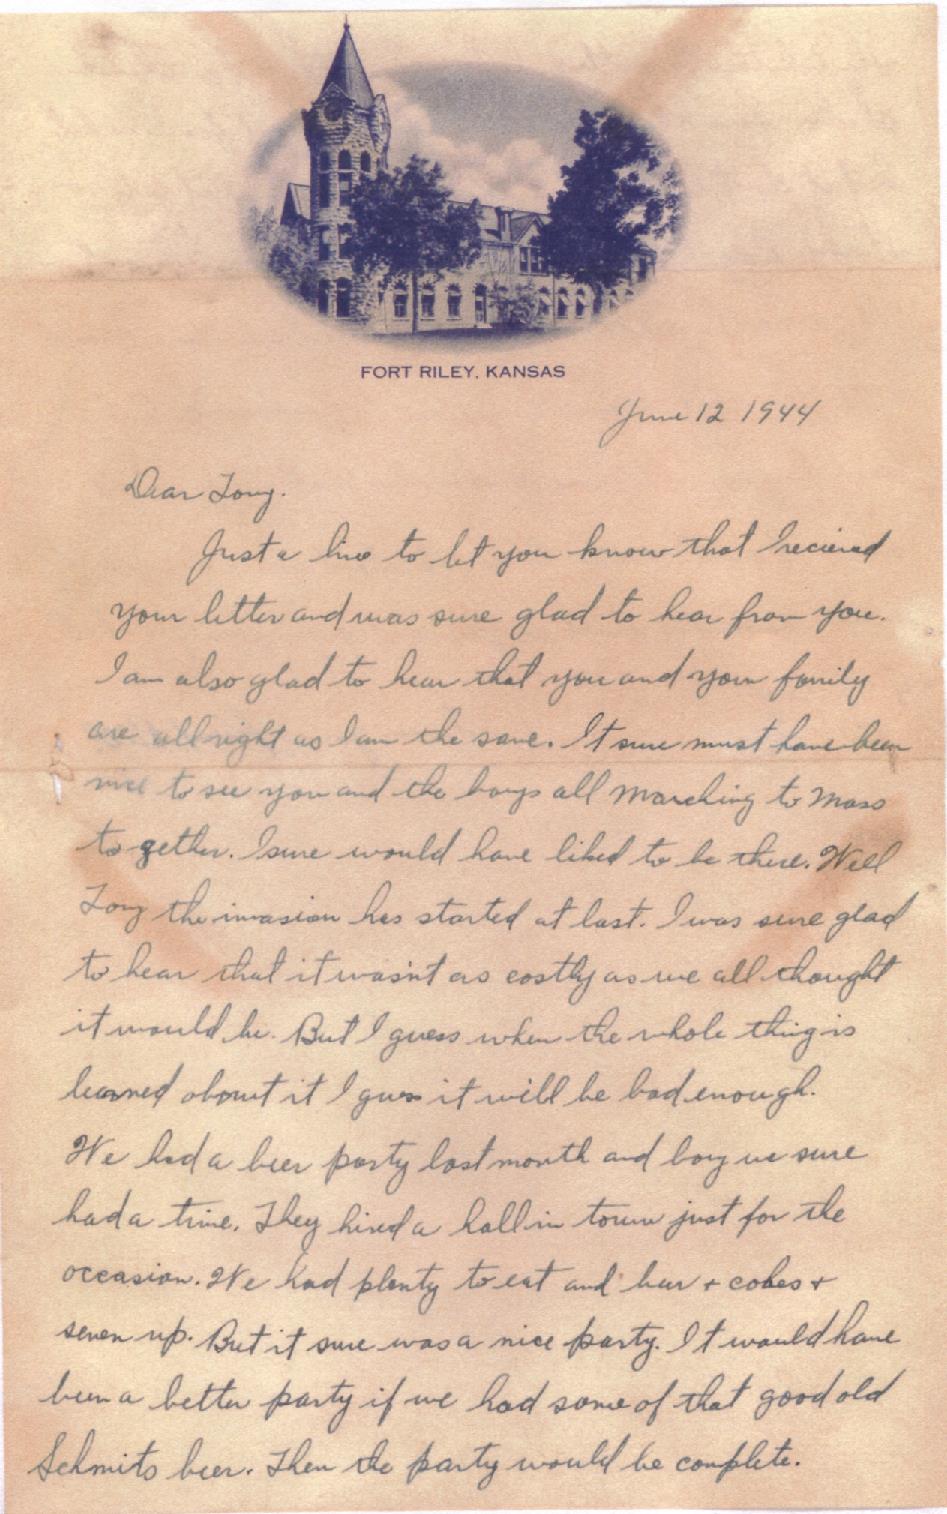 FORT RILEY, KANSAS
June 12 1944
Dear Tony.
Just a line to let you know that I recieved
your letter and was sure glad to hear from you.
I am also glad to hear that you and your family
are allright as I am the same. It sure must have been
nice to see you and the boys all marching to Mass
together. I sure would have liked to be there. Well
Tony the invasion has started at last. I was sure glad
to hear that it wasn't as costly as we all thought
it would be. But I guess when the whole thing is
learned about it I guess it will be bad enough.
We had a beer party last month and boy we sure
had a time. They hired a hall in town just for the
occasion. We had plenty to eat and beer + cokes +
seven up. But it sure was a nice party. It would have
been a better party if we had some of that good old
Schmits beer. Then the party would be complete.